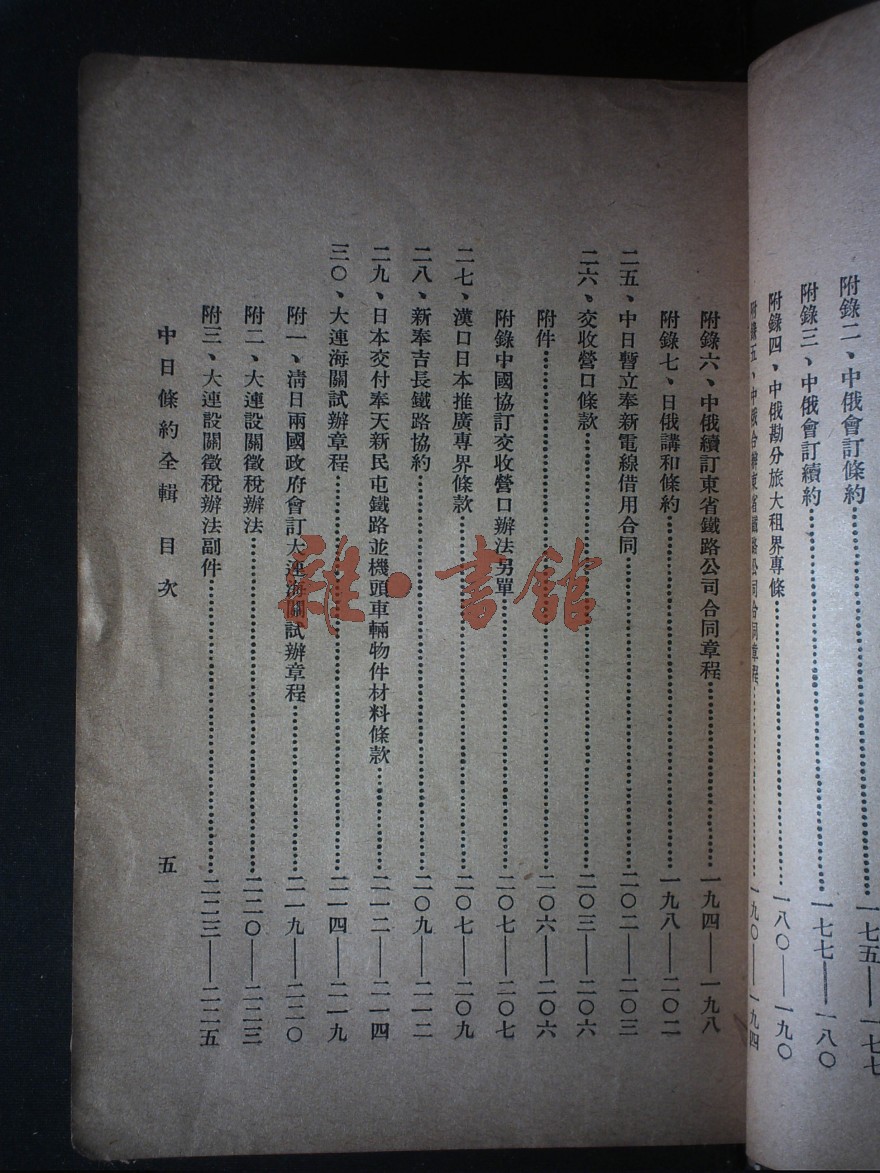 附錄二、中俄會訂條約………一七五——一七七
附錄三、中俄會訂續約………一七七——一八〇
附錄四、中俄勘分旅大租界專條………一八〇——一九〇
附錄五、中俄合辦東省鐵路公司合同章程………一九〇——一九四
附錄六、中俄續訂東省鐵路公司合同章程………一九四——一九八
附錄七、日俄講和條約………一九八——二〇二
二五、中日暫立奉新電線借用合同………二〇二——二〇三
二六、交收營口條款………二〇三——二〇六
附件………二〇六——二〇六
附錄中國協訂交收營口辦法另單………二〇七——二〇七
二七、漢口日本推廣專界條款………二〇七——二〇九
二八、新奉吉長鐵路協約………二〇九——二一二
二九、日本交付奉天新民屯鐵路並機頭車輛物件材料條款………二一二——二一四
三〇、大連海關試辦章程………二一四——二一九
附一、清日兩國政府會訂大連海關試辦章程………二一九——二二〇
附二、大連設關徵稅辦法………二二〇——二二三
附三、大連設關徵稅辦法副件………二二三——二二五
中日條約全輯 目次 五
雜·書館